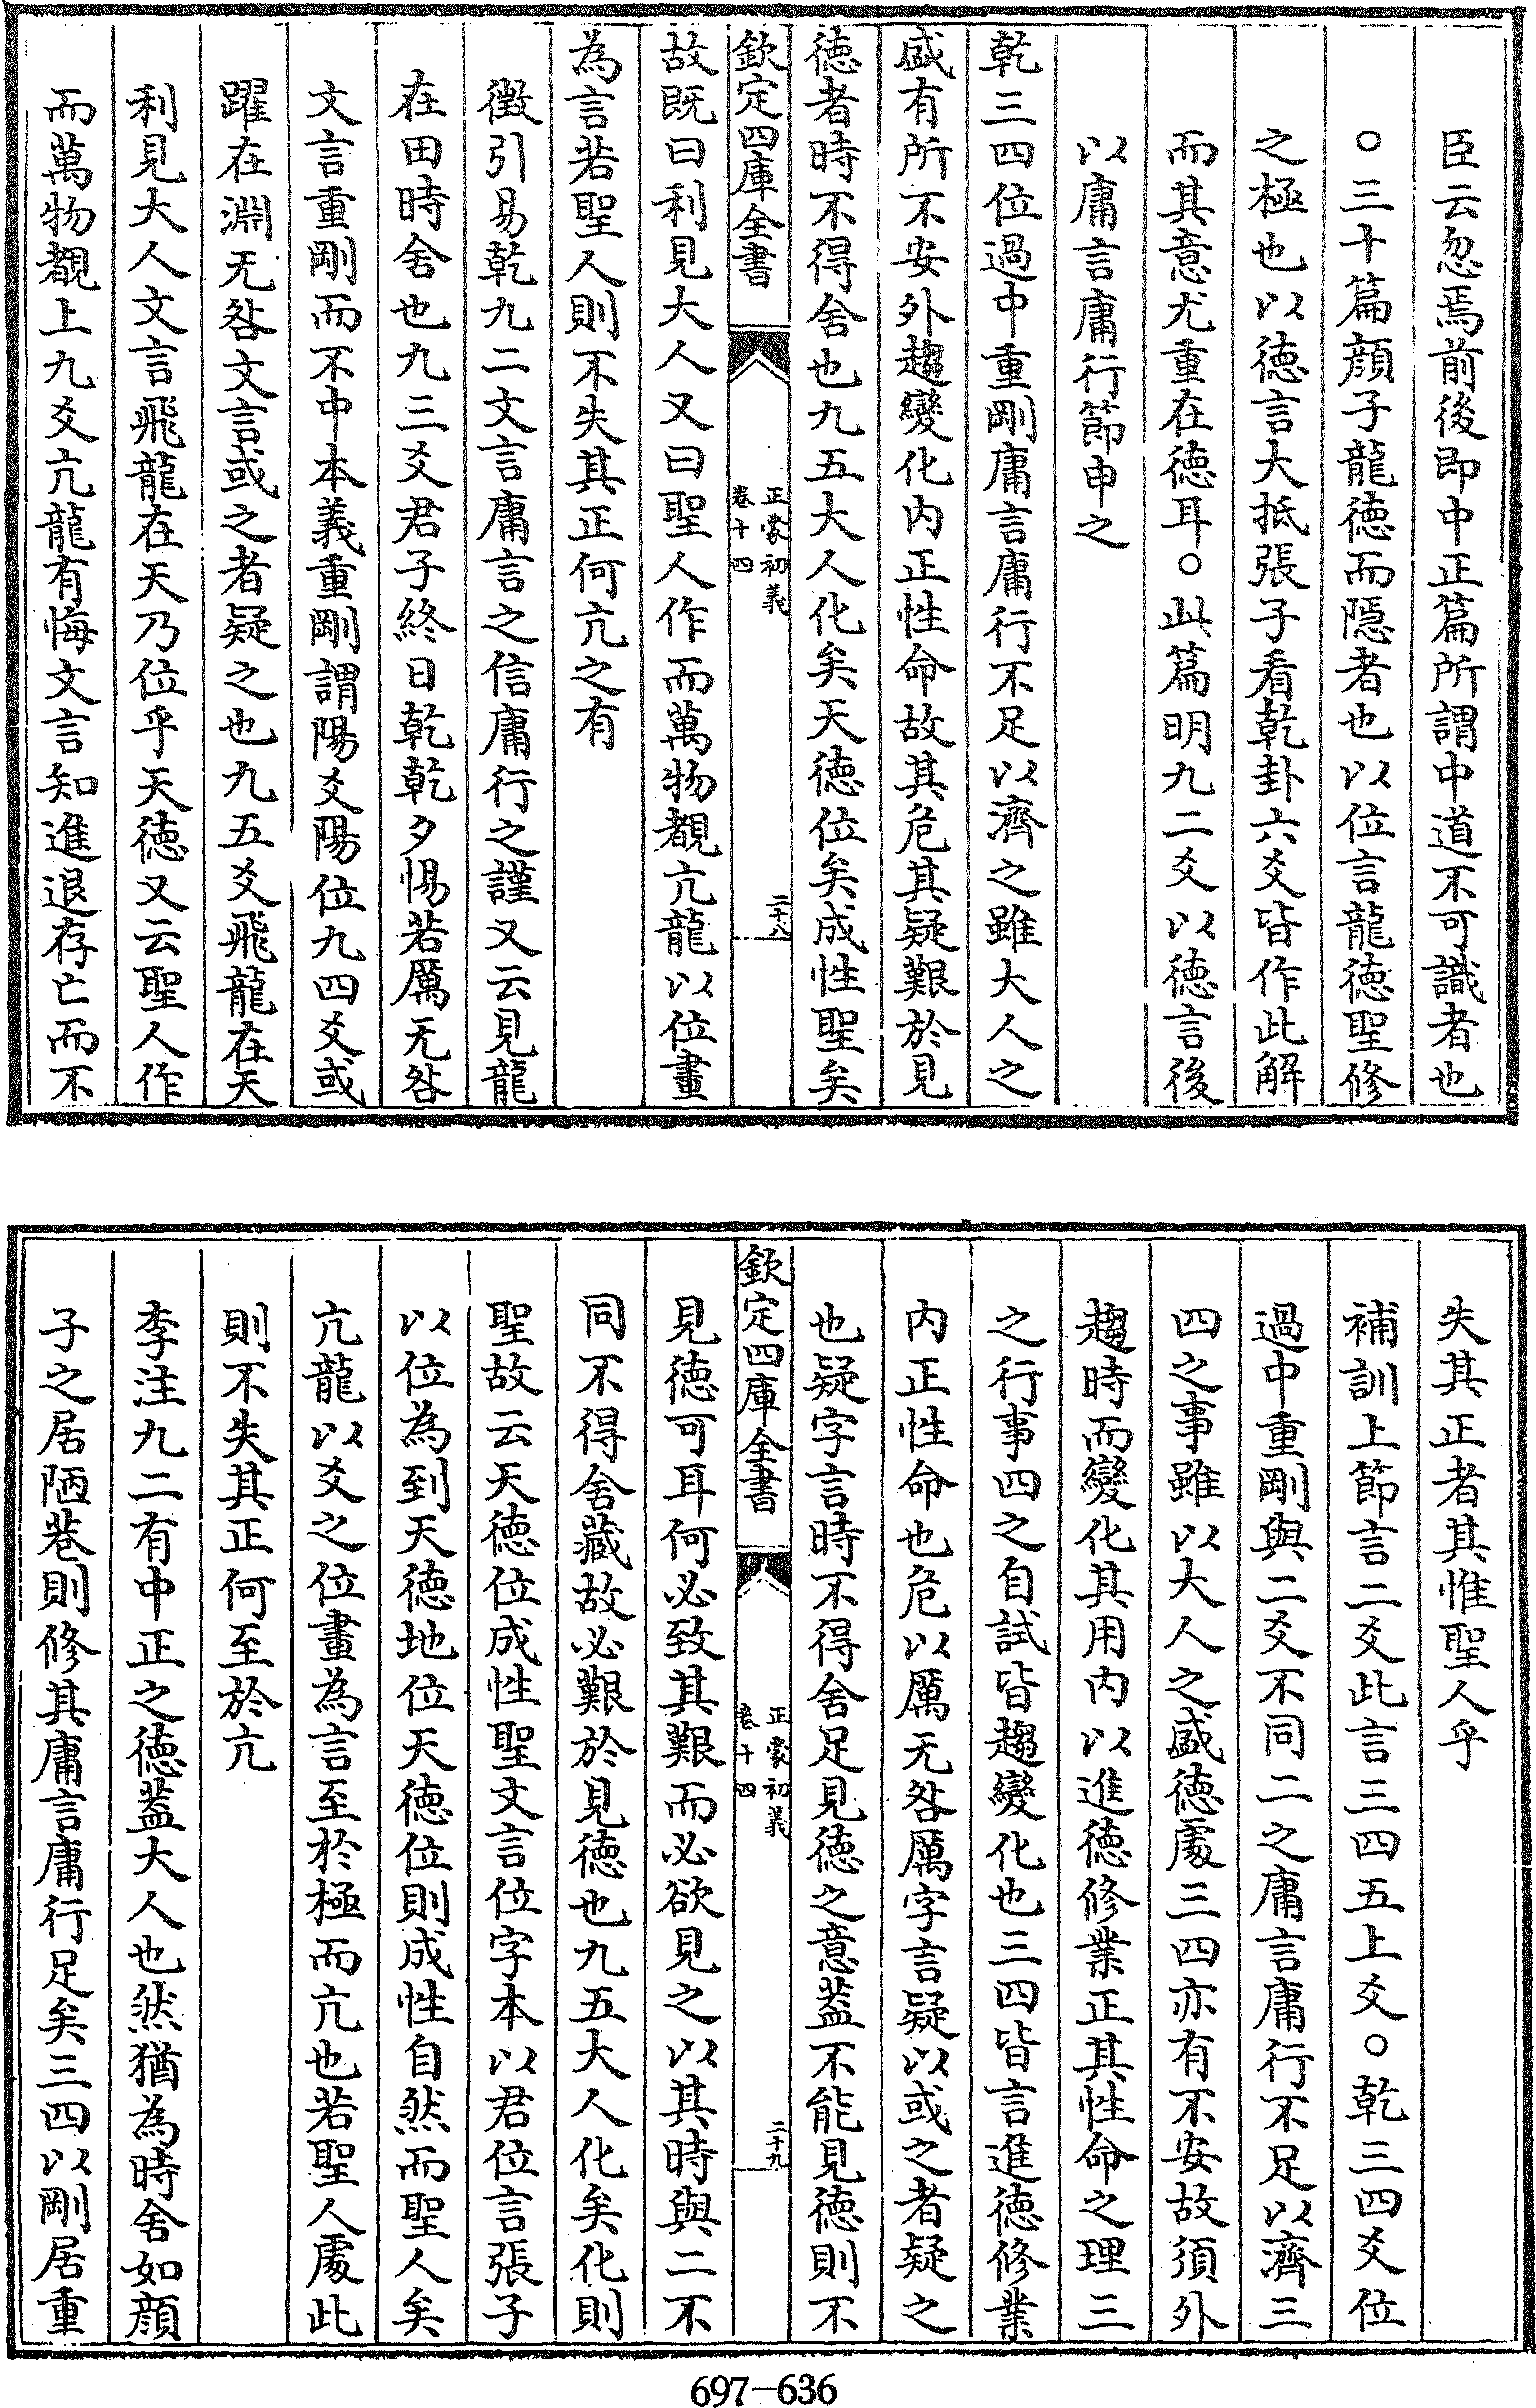 臣云忽焉前後即中正篇所謂中道不可識者也
○三十篇顔子龍徳而隱者也以位言龍徳聖修
之極也以徳言大抵張子看乾卦六爻皆作此解
而其意尤重在徳耳○此篇明九二爻以徳言後
以庸言庸行節申之
乾三四位過中重剛庸言庸行不足以濟之雖大人之
盛有所不安外趨變化内正性命故其危其疑艱於見
徳者時不得舍也九五大人化矣天徳位矣成性聖矣
欽定四庫全書
正蒙初義
卷十四
二十八
故既曰利見大人又曰聖人作而萬物覩亢龍以位畫
為言若聖人則不失其正何亢之有
徵引易乾九二文言庸言之信庸行之謹又云見龍
在田時舍也九三爻君子終日乾乾夕惕若厲无咎
文言重剛而不中本義重剛謂陽爻陽位九四爻或
躍在淵无咎文言或之者疑之也九五爻飛龍在天
利見大人文言飛龍在天乃位乎天徳又云聖人作
而萬物覩上九爻亢龍有悔文言知進退存亡而不
失其正者其惟聖人乎
補訓上節言二爻此言三四五上爻○乾三四爻位
過中重剛與二爻不同二之庸言庸行不足以濟三
四之事雖以大人之盛徳處三四亦有不安故須外
趨時而變化其用内以進徳修業正其性命之理三
之行事四之自試皆趨變化也三四皆言進徳修業
内正性命也危以厲无咎厲字言疑以或之者疑之
也疑字言時不得舍足見徳之意蓋不能見徳則不
欽定四庫全書
正蒙初義
卷十四
二十九
見徳可耳何必致其艱而必欲見之以其時與二不
同不得舍藏故必艱於見徳也九五大人化矣化則
聖故云天徳位成性聖文言位字本以君位言張子
以位為到天徳地位天徳位則成性自然而聖人矣
亢龍以爻之位畫為言至於極而亢也若聖人處此
則不失其正何至於亢
李注九二有中正之徳蓋大人也然猶為時舍如顔
子之居陋巷則修其庸言庸行足矣三四以剛居重
697-636